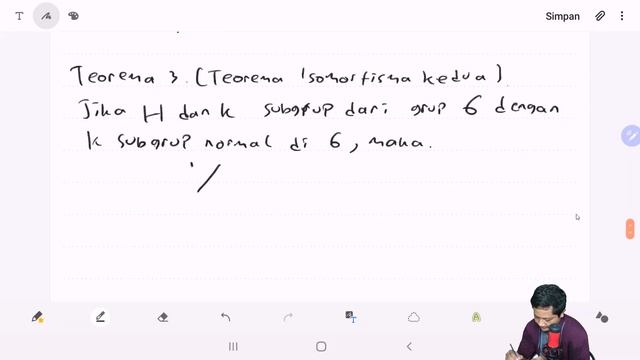 T
Simpan
Teorema 3. (Teorema Isomorfisma kedua).
Jika H dan K subgrup dari grup G dengan
K subgrup normal di G, maka.